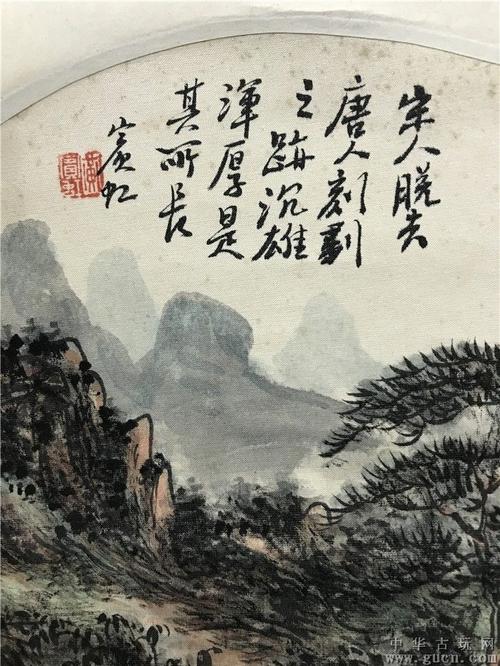 宋人脱去
唐人刻劃
之跡沉雄
渾厚是
其所長
賓虹
黃賓虹
中华古玩网
www.gucn.com